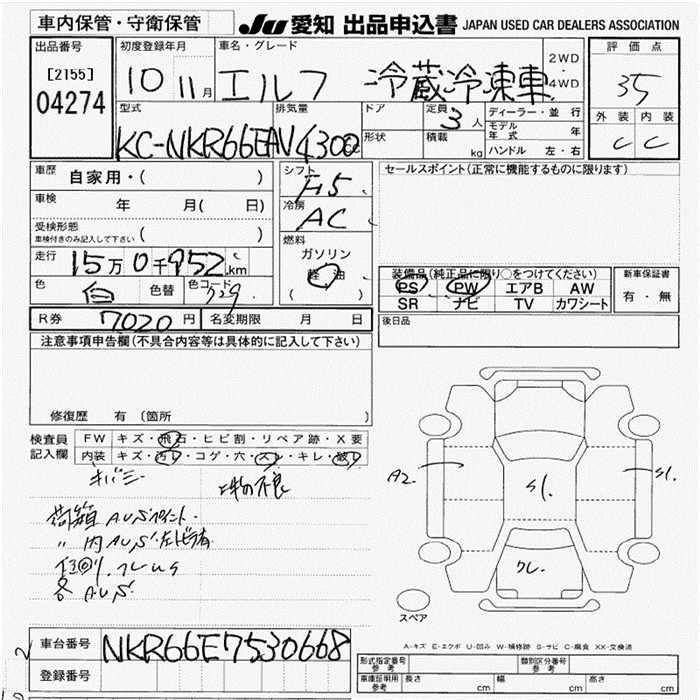 車内保管・守衛保管
JU 愛知 出品申込書 JAPAN USED CAR DEALERS ASSOCIATION
出品番号
[2155]
04274
初度登録年月
10 11月
車名・グレード
エルフ 冷蔵冷凍車
2WD
・
4WD
評価点
35
外装 内装
C C
型式
KC-NKR66EAV
排気量
4300cc
ドア
形状
定員
3人
積載
kg
ディーラー・並行
モデル年式 年
ハンドル 左・右
車歴
自家用・( )
車検
年 月( 日)
受検形態
車検付きのみ記入して下さい ( )
走行
15万0千952km
色
白
色替
色コード
729
シフト
F5
冷房
AC
燃料
ガソリン
軽油
( )
セールスポイント(正常に機能するものに限ります)
装備品(純正品に限り○をつけてください)
PS PW エアB AW
SR ナビ TV カワシート
新車保証書
有・無
R券 7020円
名変期限 月 日
後日品
注意事項申告欄(不具合内容等は具体的に記入して下さい)
修復歴 有(箇所 )
検査員
記入欄
FW キズ・飛石・ヒビ割・リペア跡・X要
内装 キズ・汚レ・コゲ・穴・スレ・キレ・破レ
キバミ
荷箱 AUSポイント
〃 内AUS
各 AUS
A2.
S1.
S1.
クレ.
スペア
A-キズ E-エクボ U-凹み W-補修跡 S-サビ C-腐食 XX-交換済
車台番号
NKR66E7530668
登録番号
形式指定番号
参考
類別区分番号
参考
車庫証明用
参考
長さ cm
幅 cm
高さ cm